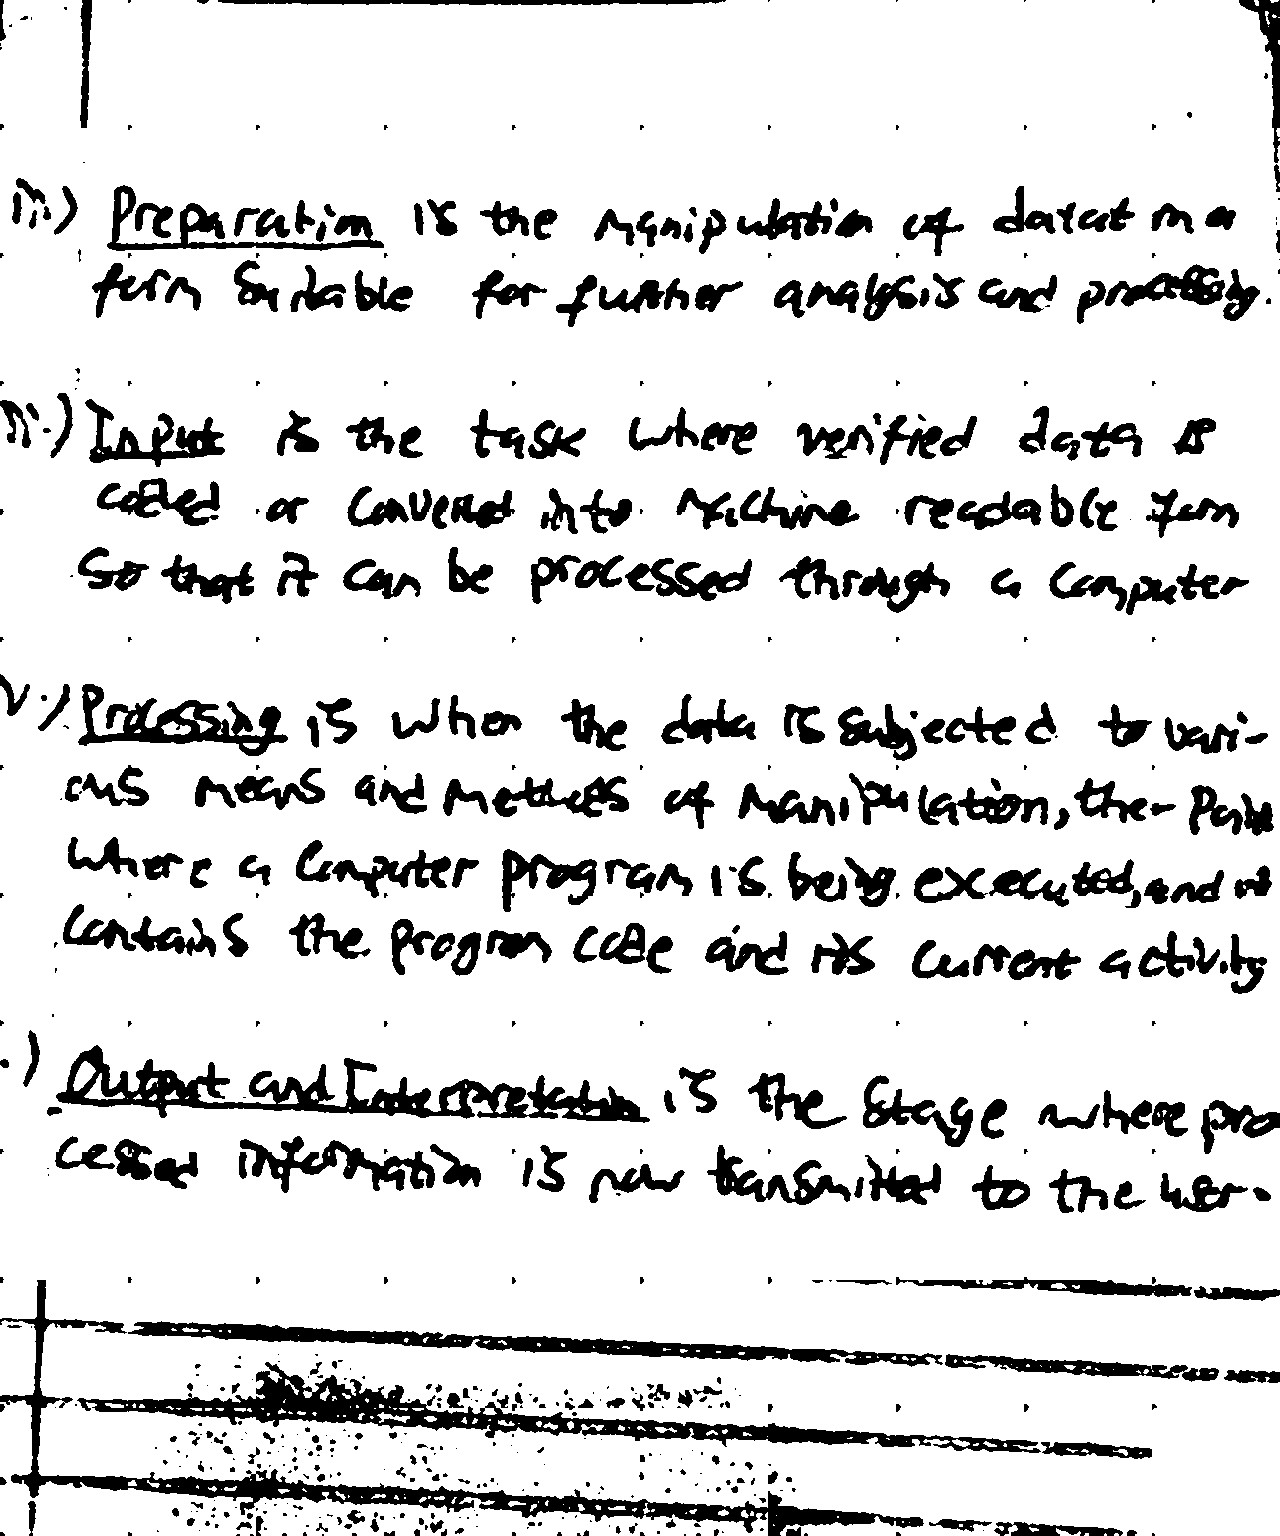 ii.) Preparation is the manipulation of data in a
form suitable for further analysis and processing.
iii.) Input is the task where verified data is
coded or converted into machine readable form
so that it can be processed through a computer
v.) Processing is when the data is subjected to vari-
ous means and methods of manipulation, the
where a computer program is being executed, and it
contains the program code and its current activity
.) Output and Interpretation is the stage where pro
cessed information is now transmitted to the user.